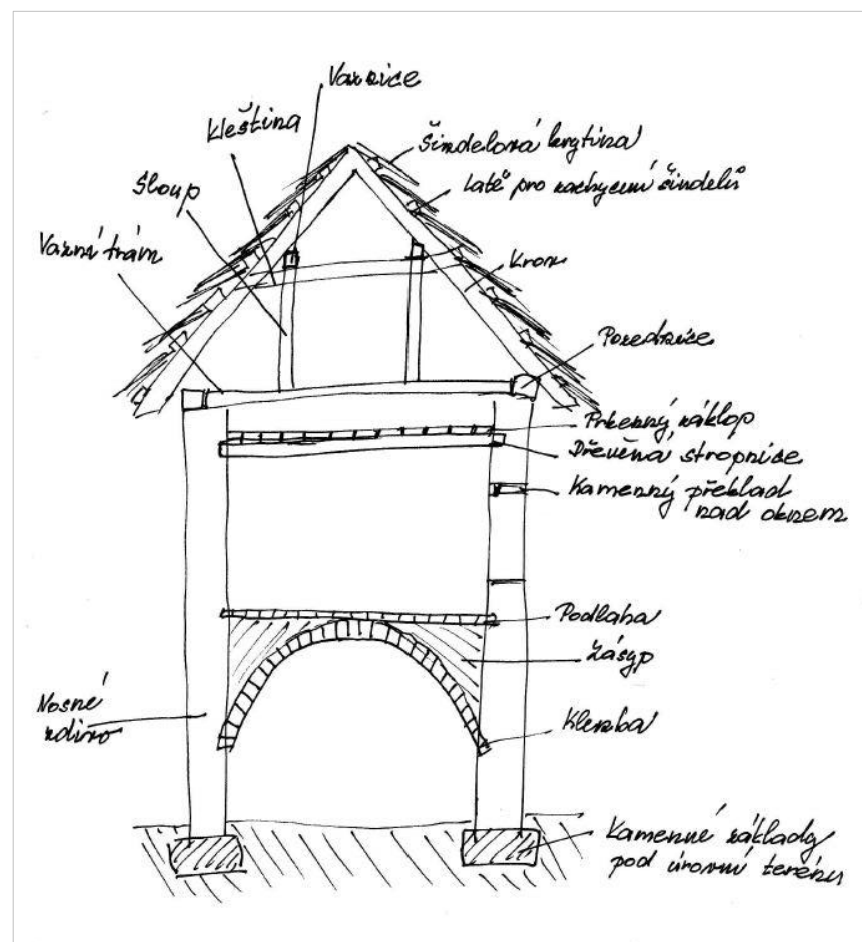 Vaznice
Kleština
Šindelová krytina
Sloup
Latě pro zachycení šindelů
Vazní trám
Krov
Pozednice
Prkenný záklop
Dřevěná stropnice
Kamenný překlad
nad oknem
Podlaha
Zásyp
Nosné
zdivo
Klenba
Kamenné základy
pod úrovní terénu